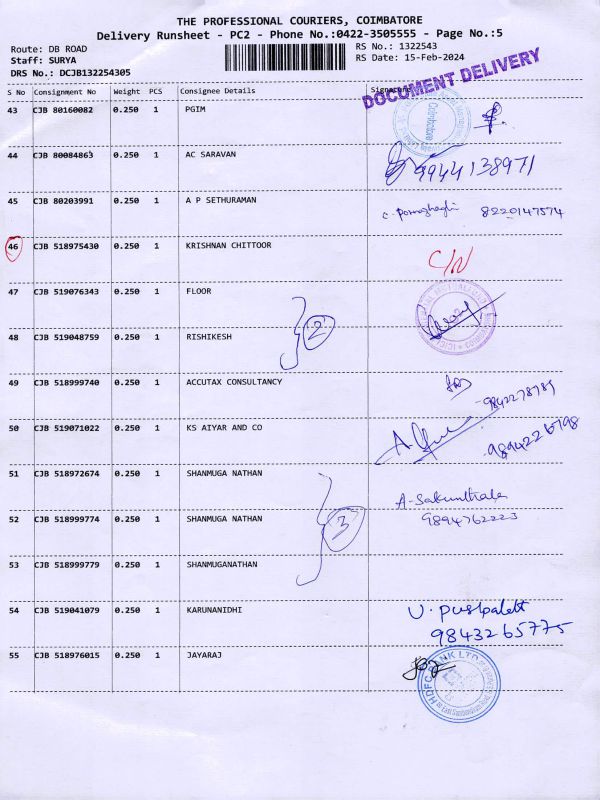 THE PROFESSIONAL COURIERS, COIMBATORE
Delivery Runsheet - PC2 - Phone No.:0422-3505555 - Page No.:5
Route: DB ROAD
RS No.: 1322543
Staff: SURYA
RS Date: 15-Feb-2024
DRS No.: DCJB132254305
DOCUMENT DELIVERY
S No Consignment No Weight PCS Consignee Details Signature
43 CJB 80160082 0.250 1 PGIM
Coimbatore
44 CJB 80084863 0.250 1 AC SARAVAN
9944138971
45 CJB 80203991 0.250 1 A P SETHURAMAN
8220147574
46 CJB 518975430 0.250 1 KRISHNAN CHITTOOR
C/N
47 CJB 519076343 0.250 1 FLOOR
2
48 CJB 519048759 0.250 1 RISHIKESH
49 CJB 518999740 0.250 1 ACCUTAX CONSULTANCY
50 CJB 519071022 0.250 1 KS AIYAR AND CO
51 CJB 518972674 0.250 1 SHANMUGA NATHAN
A-Sakunthala
52 CJB 518999774 0.250 1 SHANMUGA NATHAN
9894762223
3
53 CJB 518999779 0.250 1 SHANMUGANATHAN
54 CJB 519041079 0.250 1 KARUNANIDHI
9843265775
55 CJB 518976015 0.250 1 JAYARAJ
HDFC BANK LTD